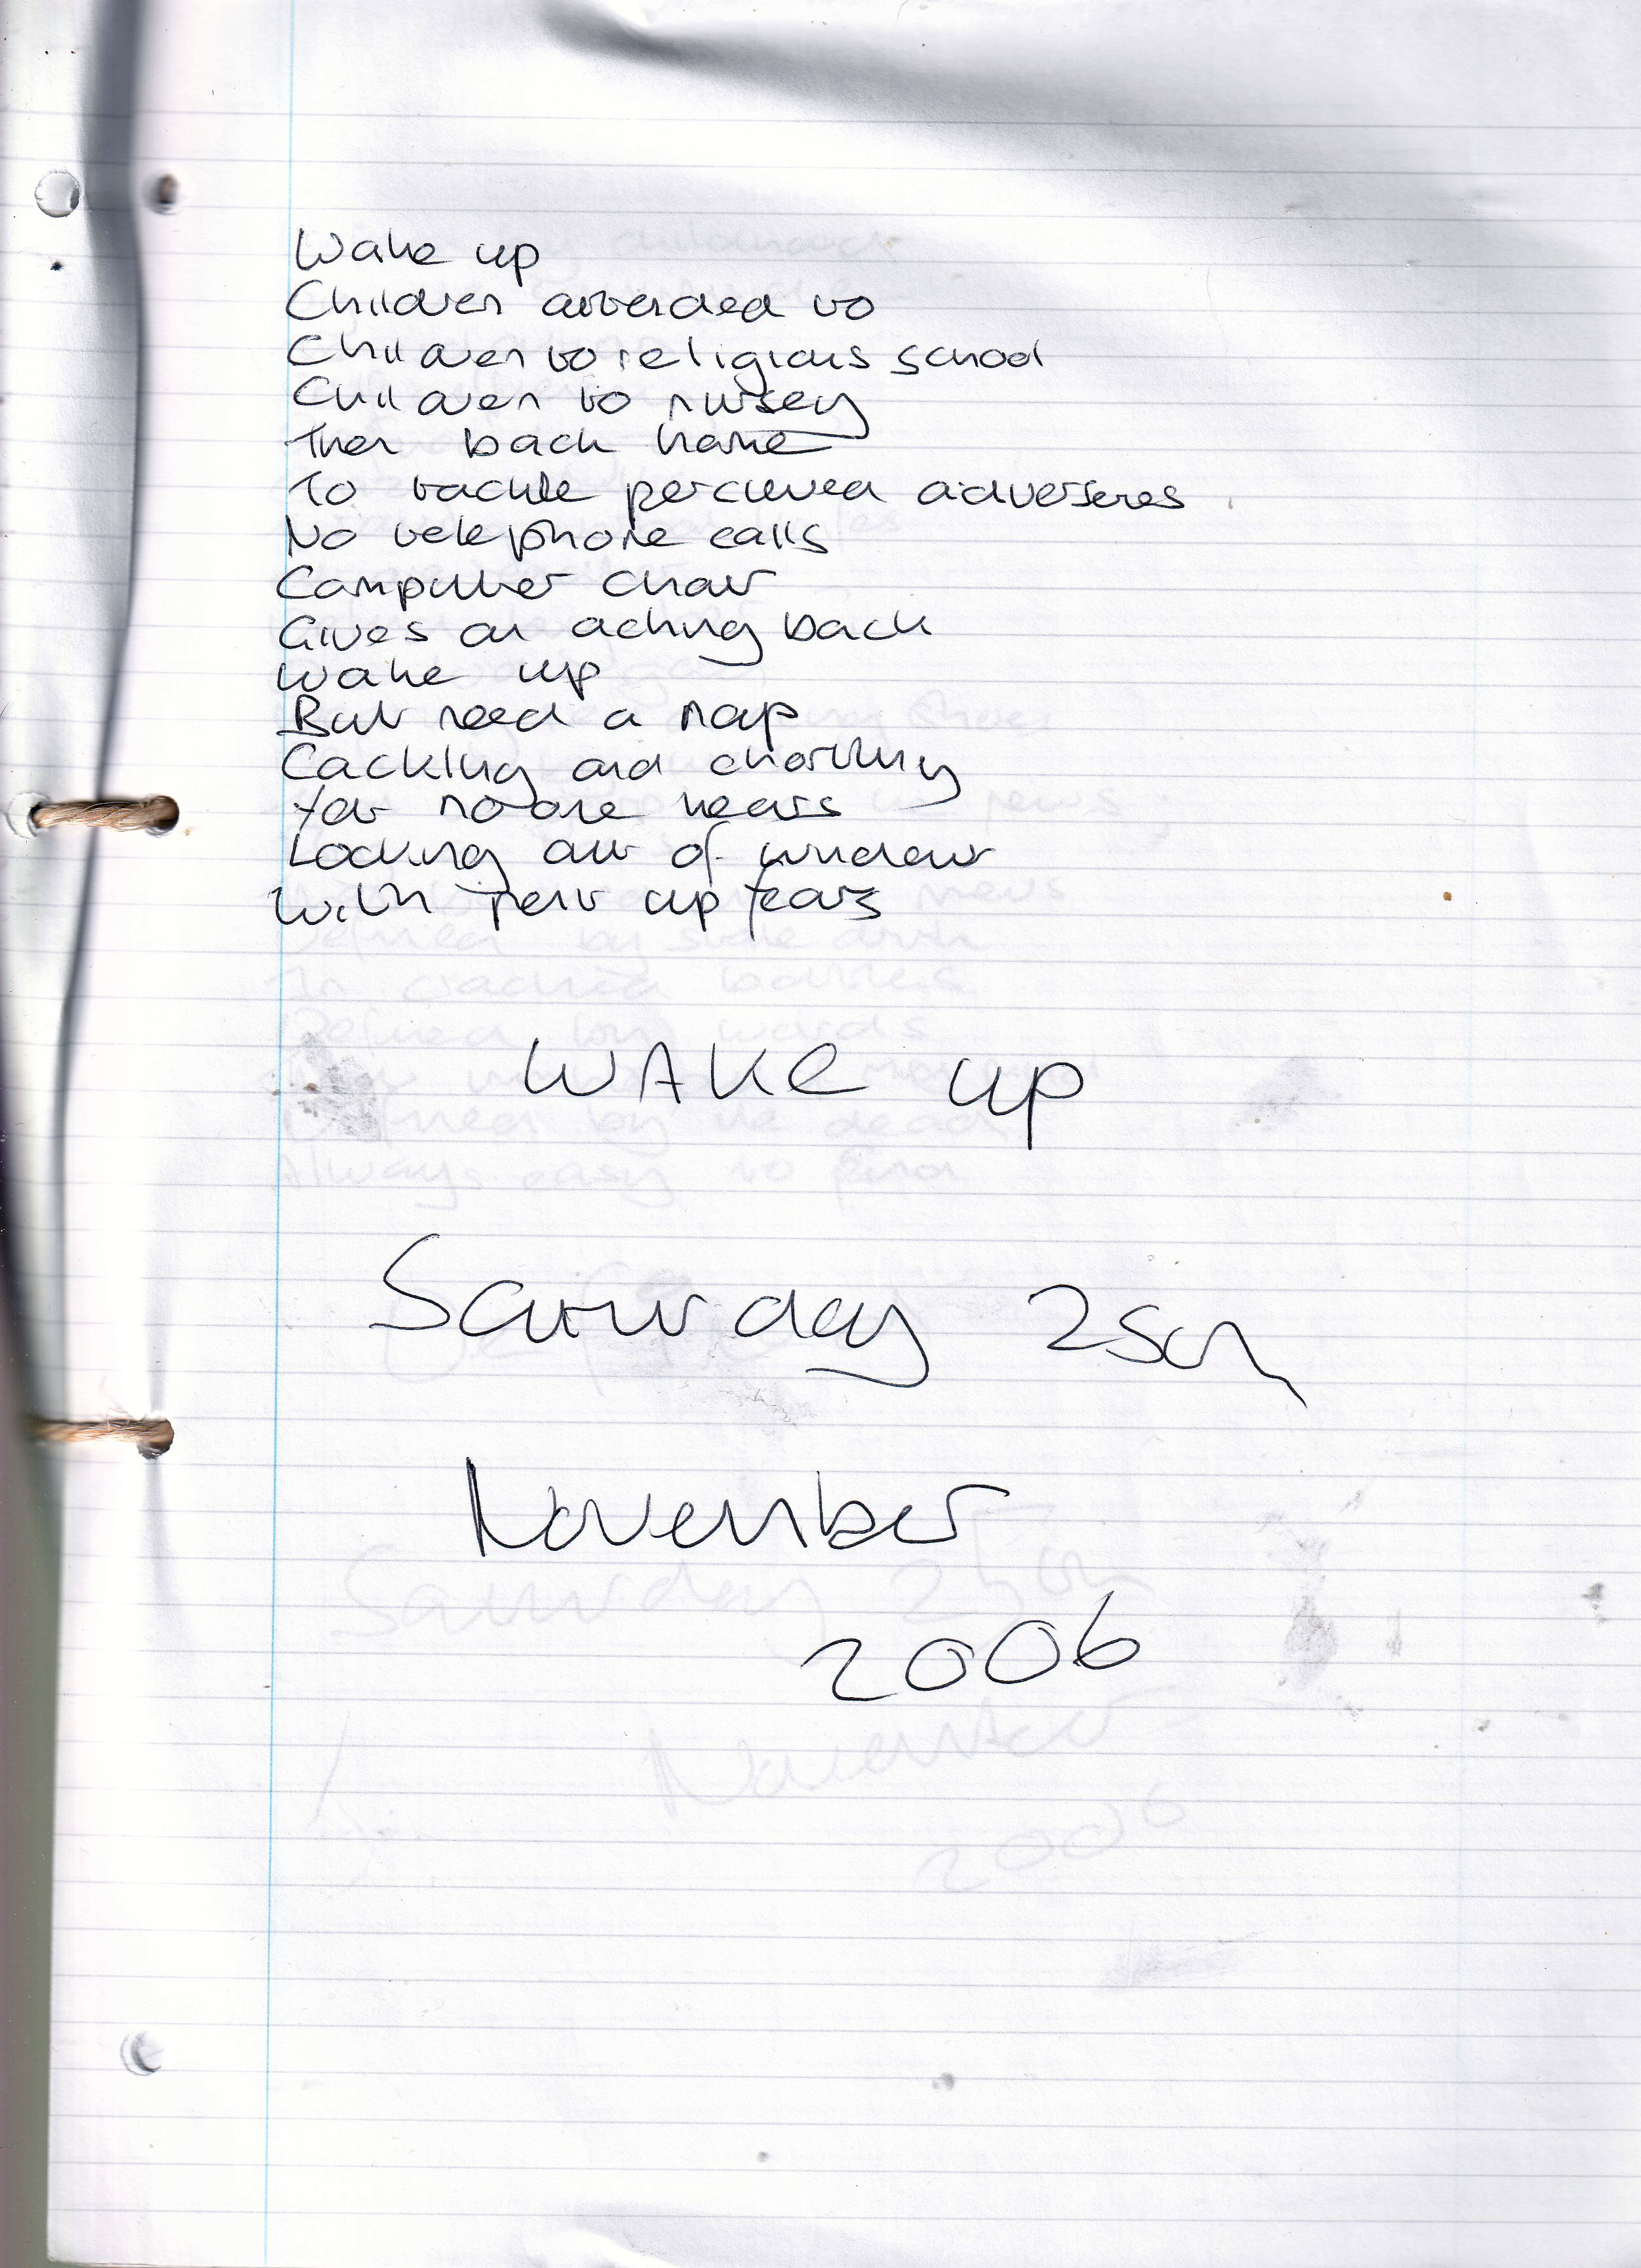 Wake up
Children attended to
Children to religious school
Children to nursey
Then back home
To tackle percieved adverseres
No telephone calls
Computer chair
Gives an aching back
Wake up
But need a nap
Cackling and chortling
For no one hears
Looking out of window
With pent up fears
WAKE UP
Saturday 25th
November
2006